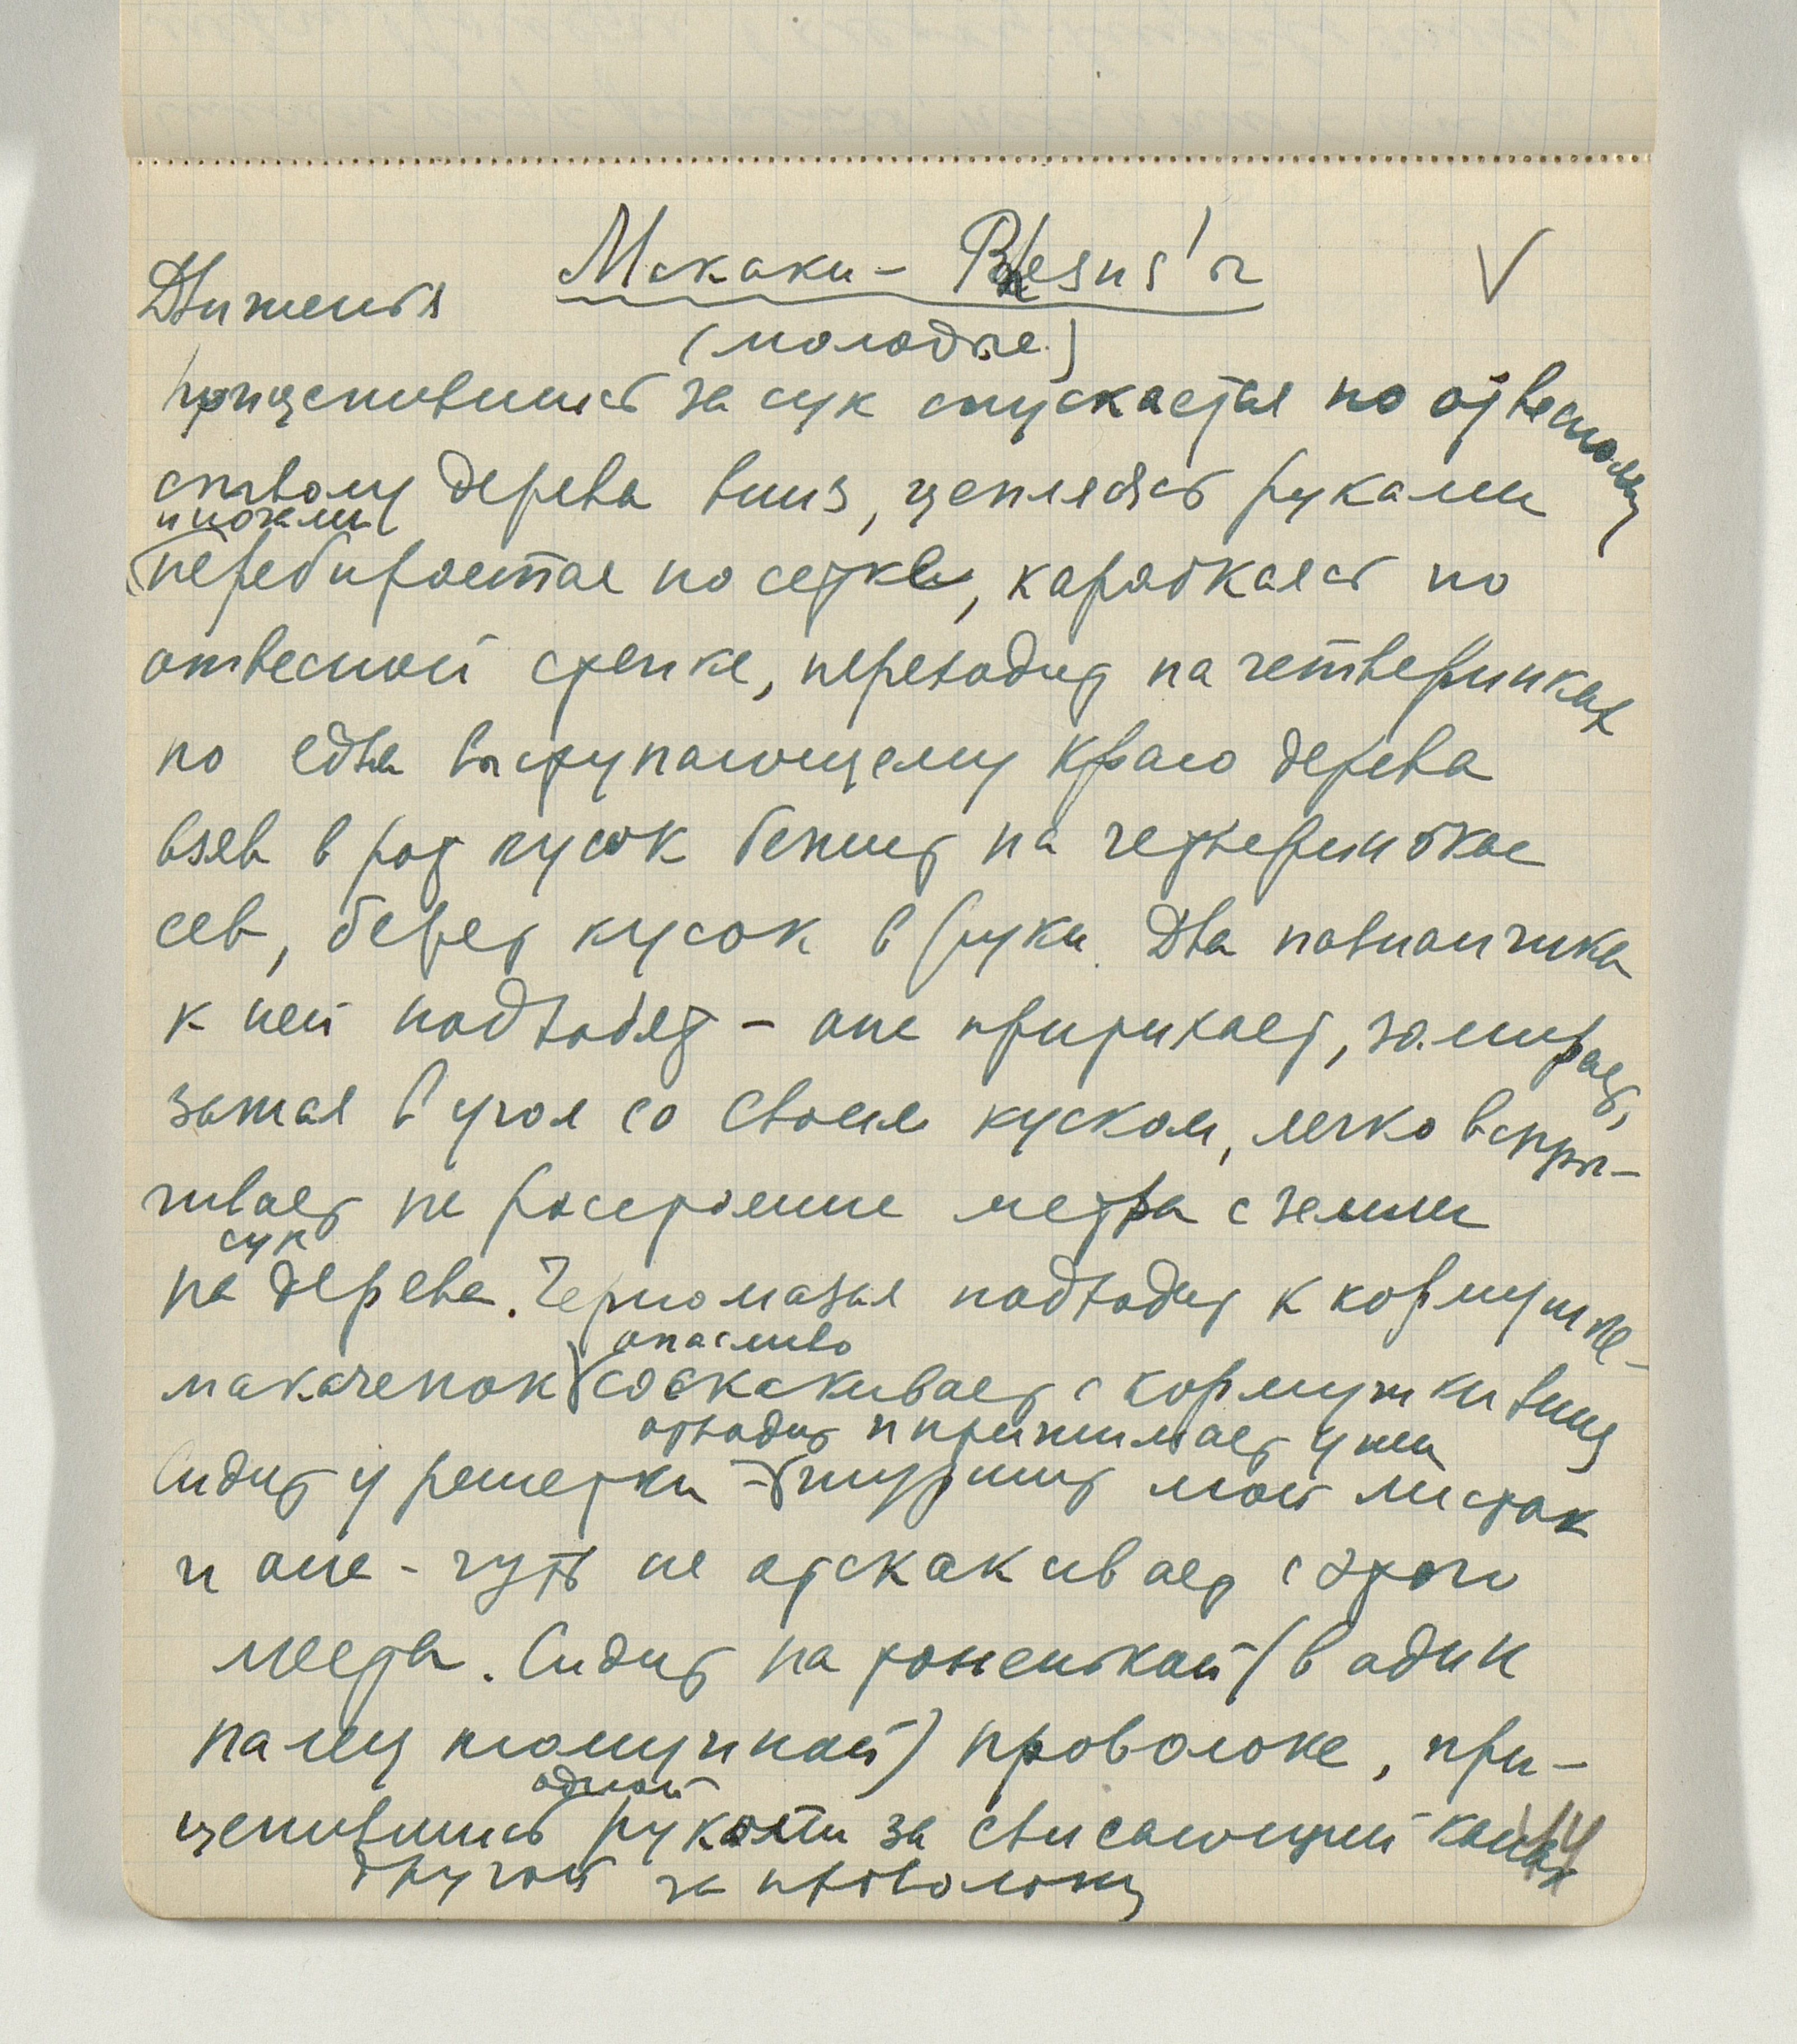 Макаки - Rhesus'ы V
Движенья
(молодые)
прицепившись за сук спускается по отвесному
стволу дерева вниз, цепляясь руками
и ногами
перебирается по сетке, карабкаясь по
отвесной стенке, переходит на четвериньках
по едва выступающему краю дерева
взяв в рот кусок бежит на четвериньках
сев, берет кусок в руки. Два павианчика
к ней подходят - она притихает, замирает,
зажая в угол со своим куском, легко вспры-
гивает на расстояние метра с земли
сук
на дерева. Черномазая подходит к кормушке -
опасливо
макаченок соскакивает с кормушки вниз
отходит и прижимает уши
Сидит у решетки - шуршит мой листок
и она - чуть не отскакивает с этого
места. Сидит на тоненькой (в один
палец толщиной) проволоке, при-
одной
цепившись рукой за свисающий канат
другой за проволоку
44